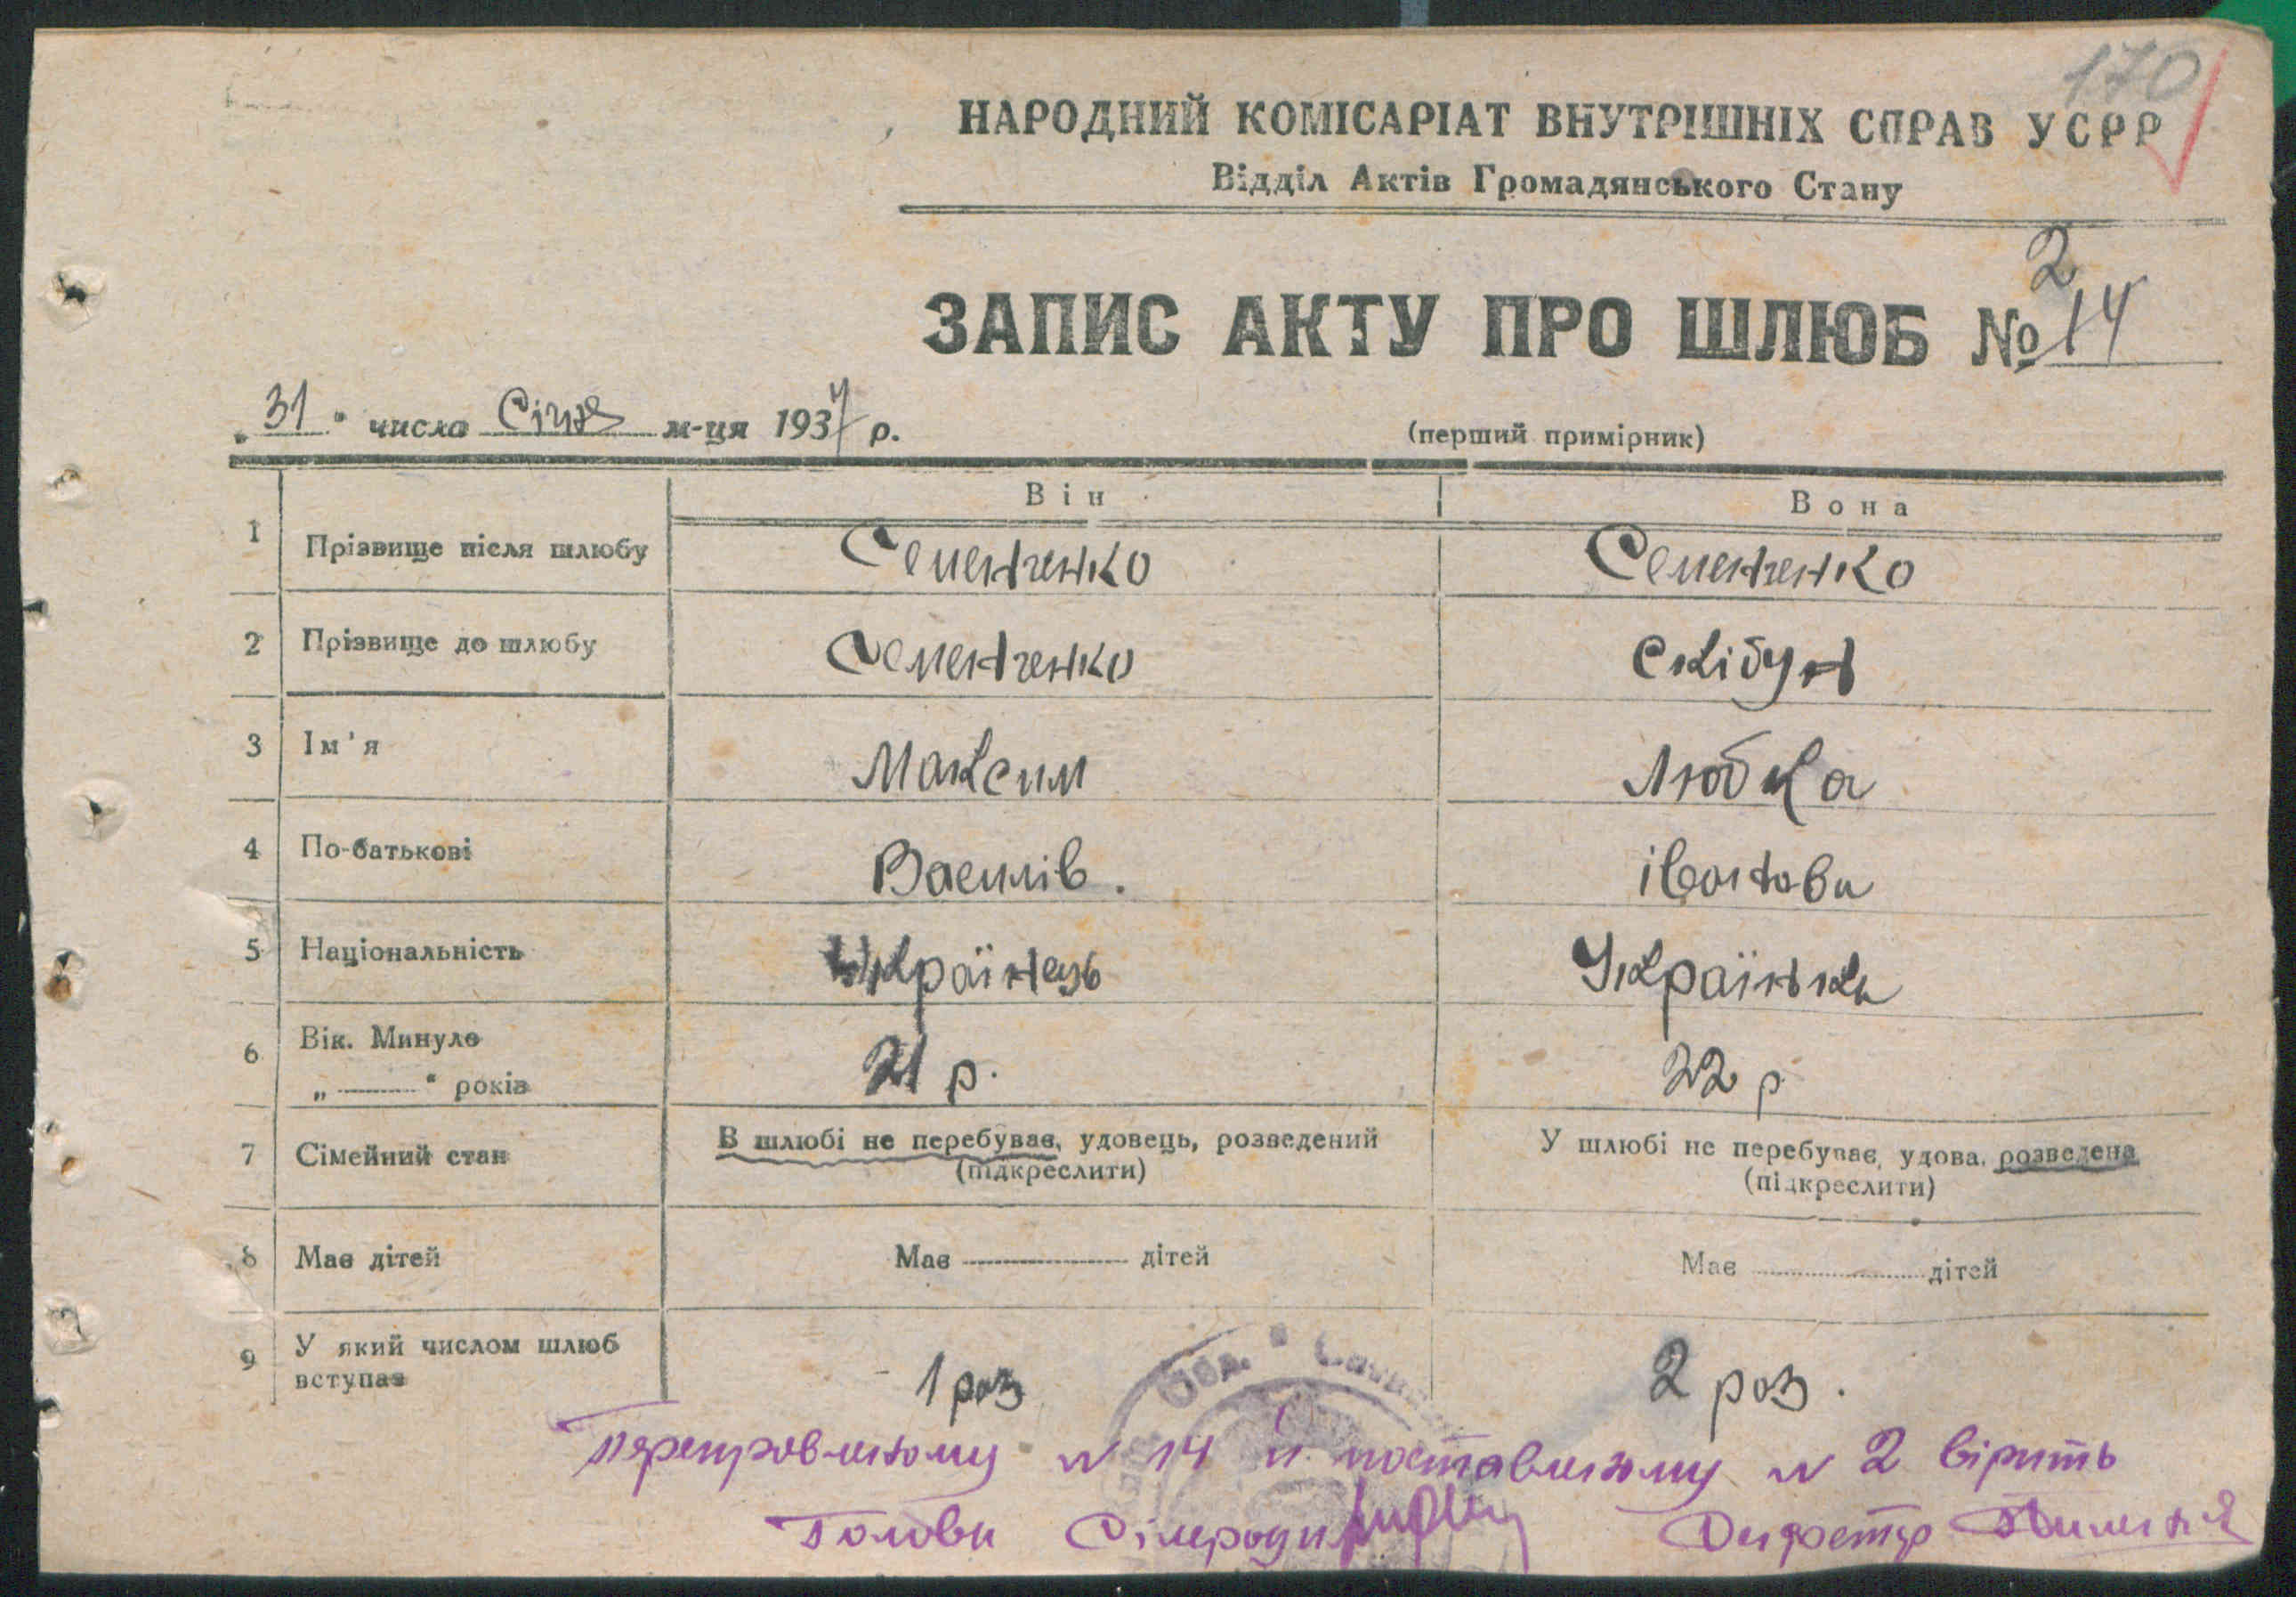 170
НАРОДНИЙ КОМІСАРІАТ ВНУТРІШНІХ СПРАВ УСРР
Відділ Актів Громадянського Стану
2
ЗАПИС АКТУ ПРО ШЛЮБ № 14
„31“ числа Січня м-ця 1937 р.
(перший примірник)
Він Вона
1 Прізвище після шлюбу Семенченко Семенченко
2 Прізвище до шлюбу Семенченко Скібун
3 Ім'я Максим Любка
4 По-батькові Василів. івановна
5 Національність Українець Українка
6 Вік. Минуло „ “ років 21 р. 22 р
7 Сімейний стан В шлюбі не перебував, удовець, розведений (підкреслити) У шлюбі не перебуває, удова, розведена (підкреслити)
8 Має дітей Має дітей Має дітей
9 У який числом шлюб вступає 1 раз 2 раз.
N 14 и поставленому N 2 вірить
Голова Сілради